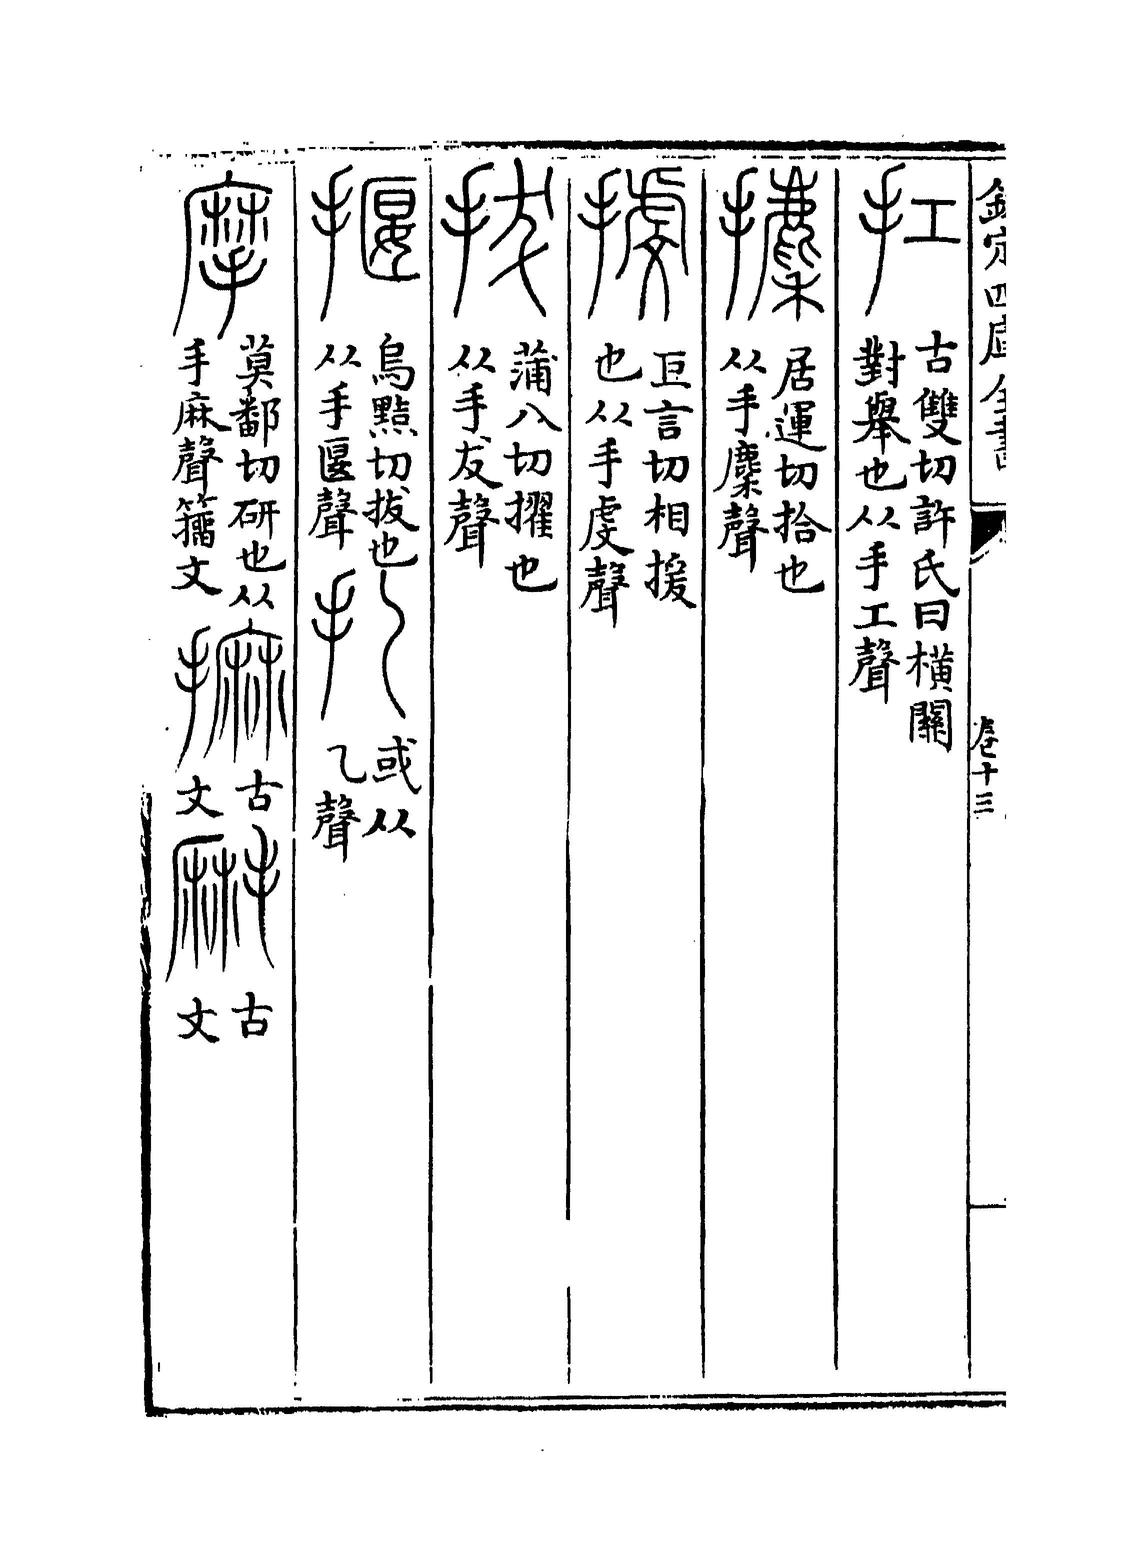 欽定四庫全書
卷十三
扛
古雙切許氏曰横關
對舉也从手工聲
攈
居運切拾也
从手麇聲
巨言切相援
也从手虔聲
拔
蒲八切擢也
从手犮聲
揠
烏黠切拔也
从手匽聲
扎
或从
乙聲
摩
莫鄱切研也从
手麻聲籀文
古
文
古
文